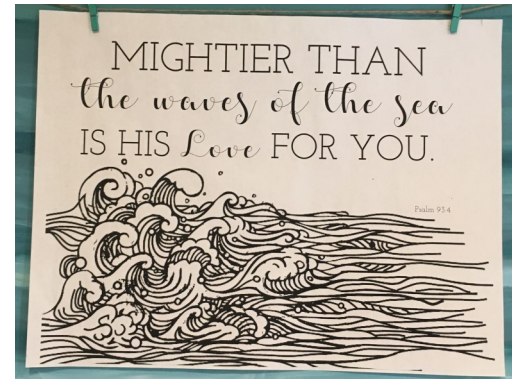 MIGHTIER THAN
the waves of the sea
IS HIS Love FOR YOU.
Psalm 93:4